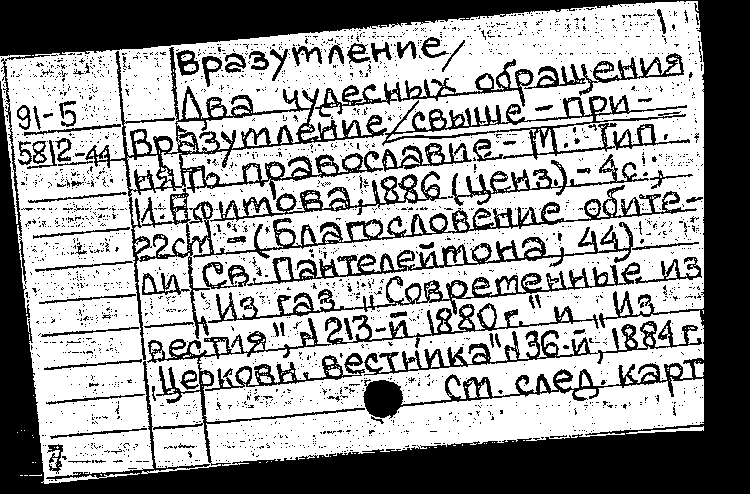 1.
Вразутление/
Два чудесных обращения.
91-5
5812-44
Вразутление/свыше - при-
нять православие. - М.: Тип.
И. Ефимова, 1886 (ценз.). - 4с.;
22см. - (Благословение обите-
ли Св. Пантелеймона; 44).
"Из газ. „Современные из
вестия", №213-й, 1880 г." и „Из
Церковн. вестника" №36-й, 1884 г."
см. след. карт